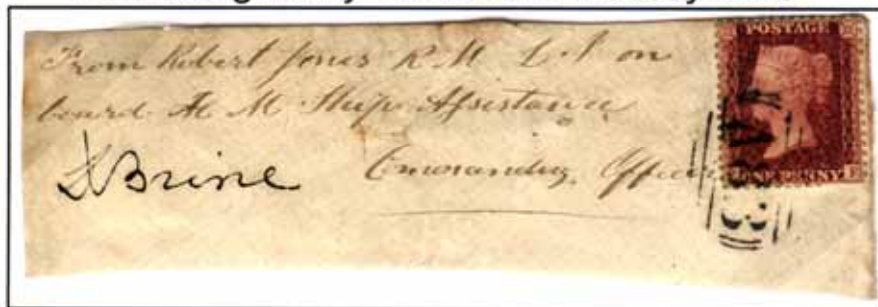 From Robert Jones R M L I on
board H M Ship Assistance
Brine Commanding Officer
POSTAGE
ONE PENNY E